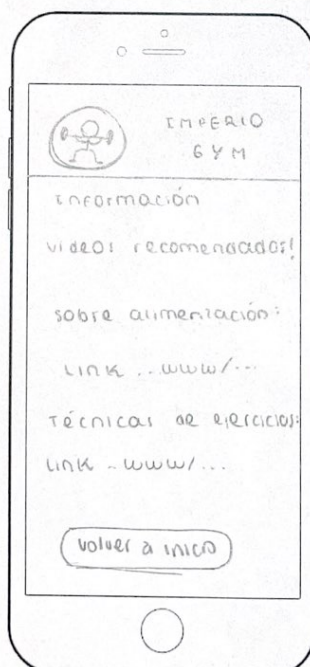 IMPERIO
GYM
información
videos recomendados!
sobre alimentación:
Link ..www/...
Técnicas de ejercicios:
Link ..www/...
volver a inicio